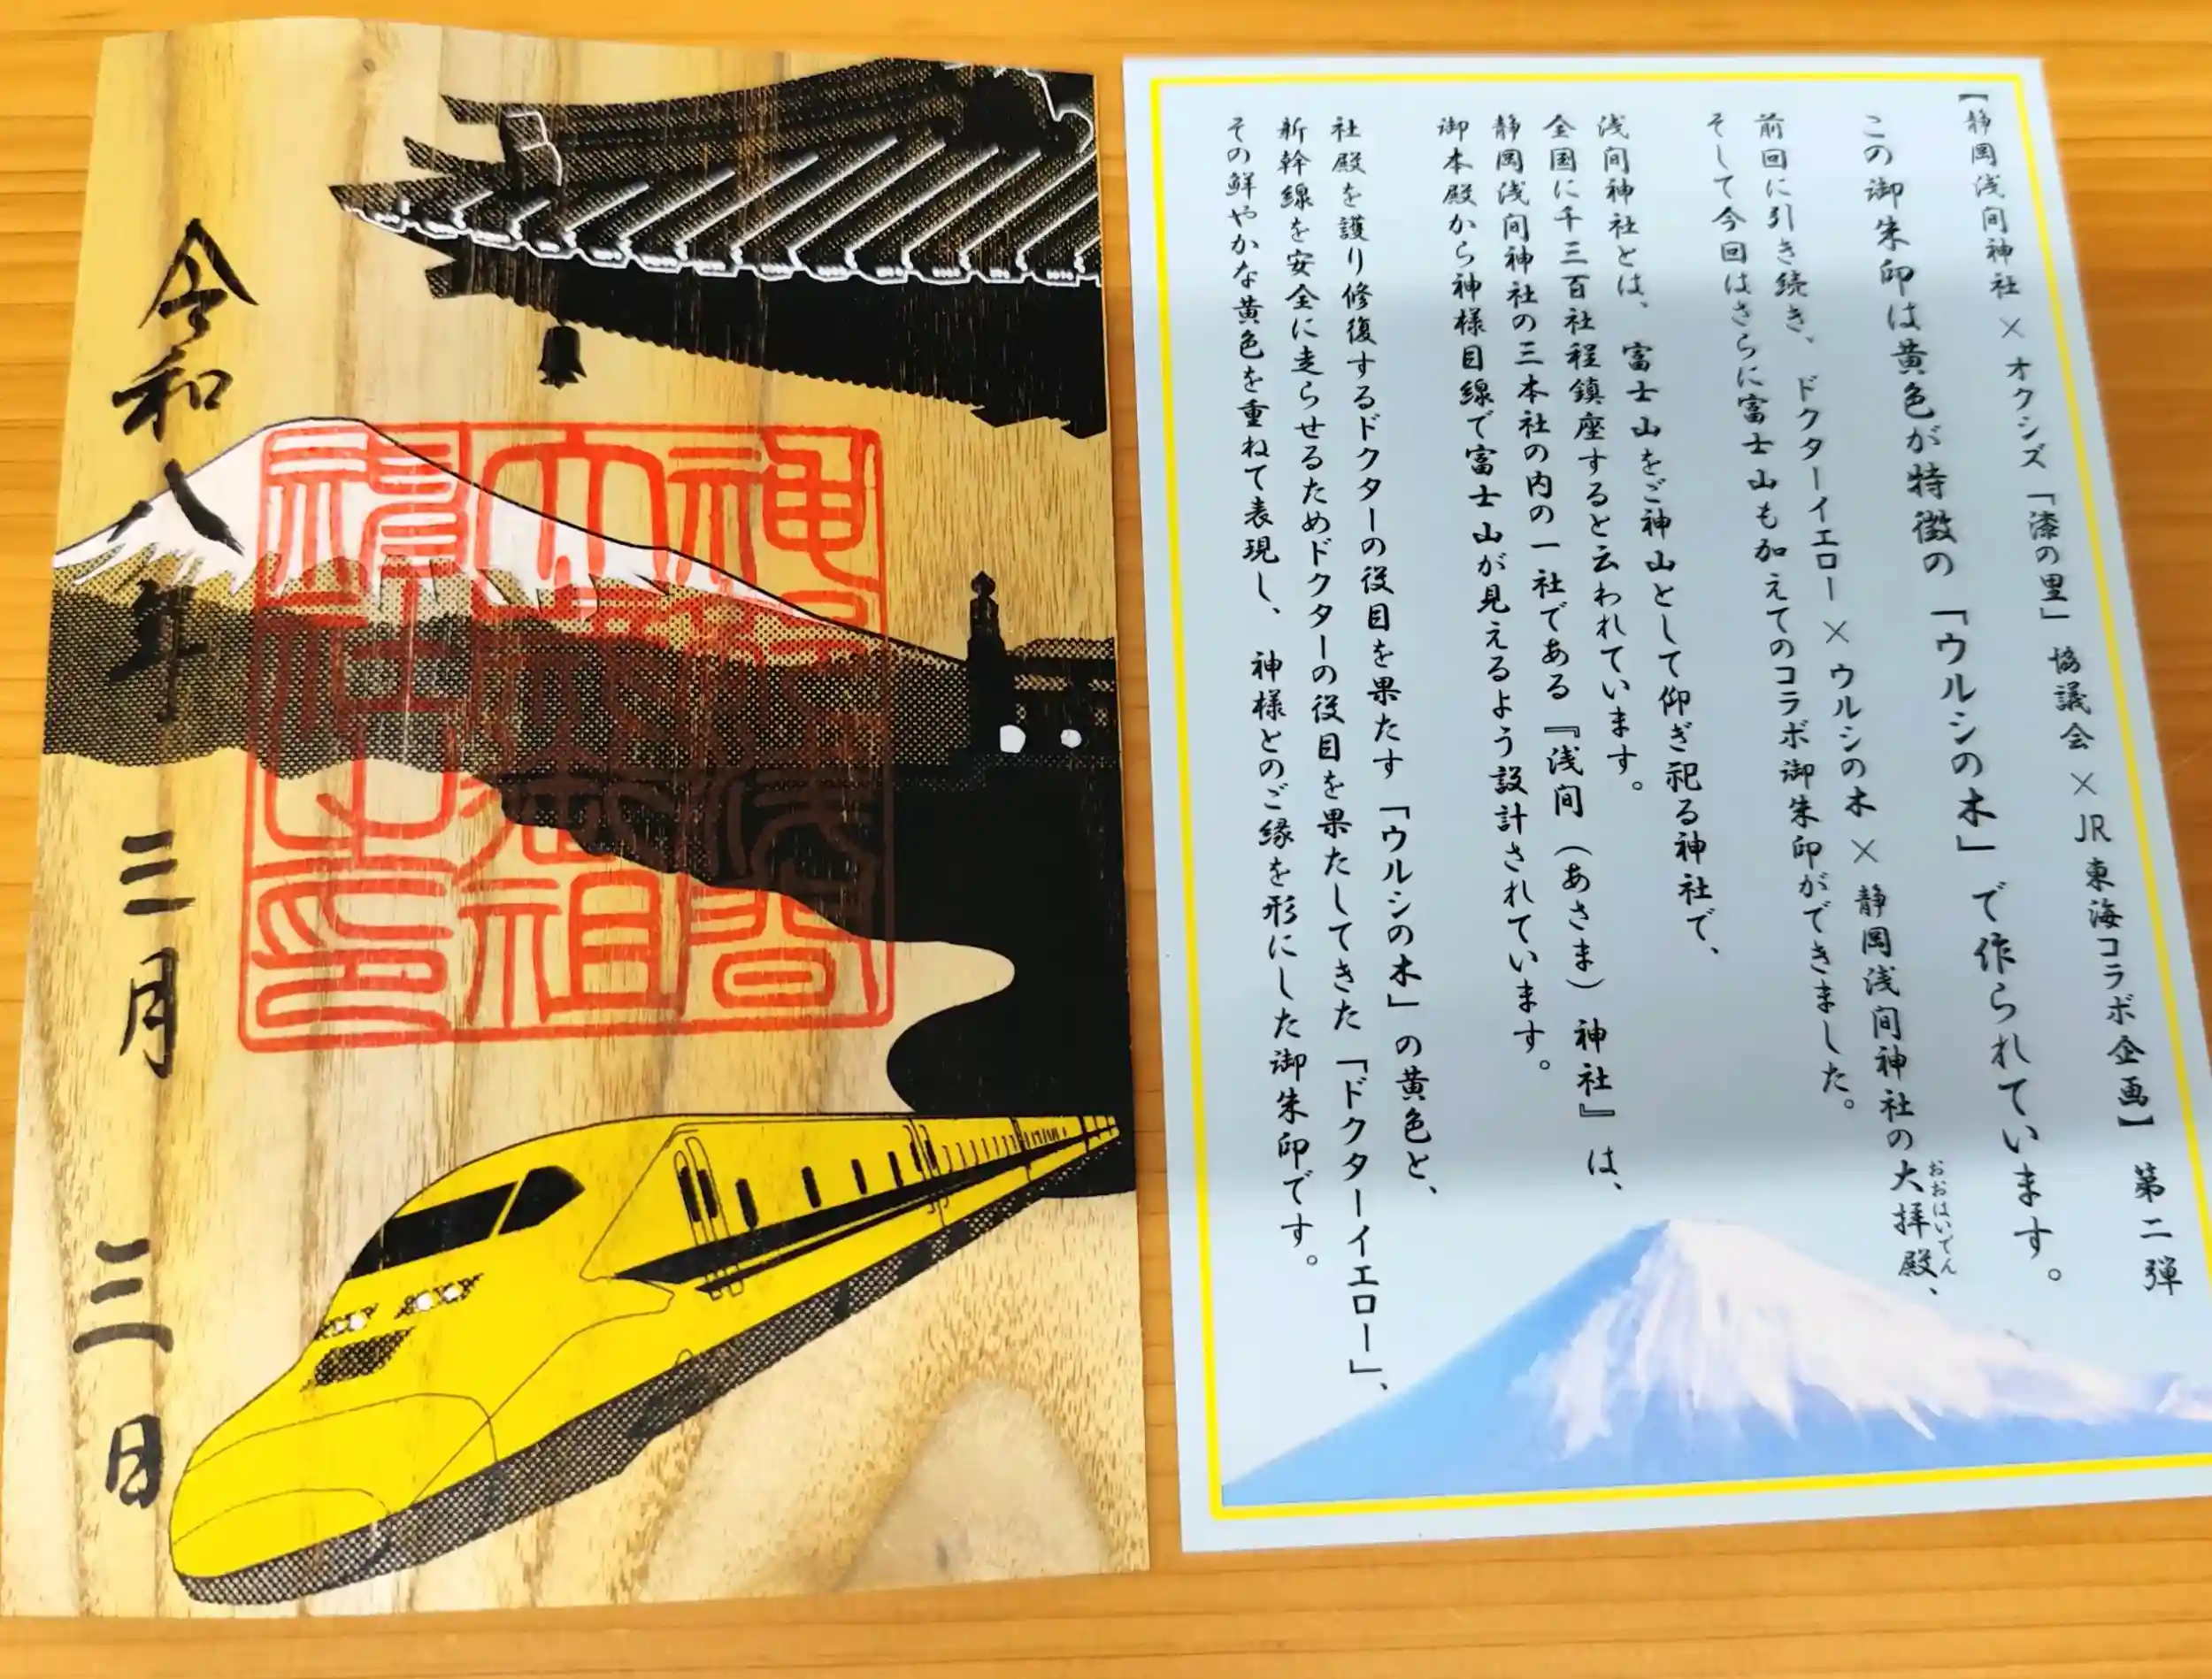 令和八年三月三日
【静岡浅間神社×オクシズ「漆の里」協議会×JR東海コラボ企画】第二弾
この御朱印は黄色が特徴の「ウルシの木」で作られています。
前回に引き続き、ドクターイエロー×ウルシの木×静岡浅間神社の大拝殿、
おおはいでん
そして今回はさらに富士山も加えてのコラボ御朱印ができました。
浅間神社とは、富士山をご神山として仰ぎ祀る神社で、
全国に千三百社程鎮座すると云われています。
静岡浅間神社の三本社の内の一社である『浅間（あさま）神社』は、
御本殿から神様目線で富士山が見えるよう設計されています。
社殿を護り修復するドクターの役目を果たす「ウルシの木」の黄色と、
新幹線を安全に走らせるためドクターの役目を果たしてきた「ドクターイエロー」、
その鮮やかな黄色を重ねて表現し、神様とのご縁を形にした御朱印です。